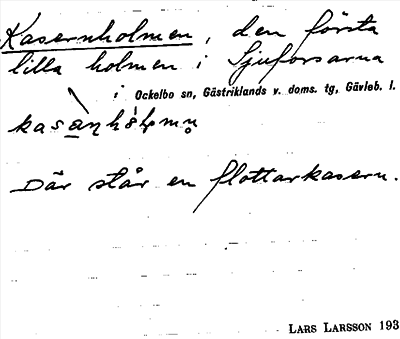 Kasernholmen, den första
lilla holmen i Sjuforsarna
i Ockelbo sn, Gästriklands v. doms. tg, Gävleb. l.
Där står en flottarkasern.
LARS LARSSON 193